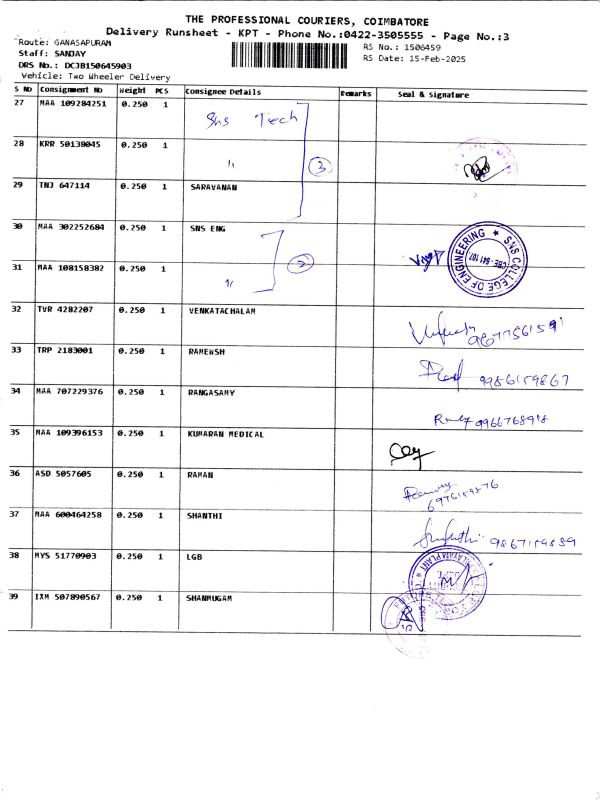 THE PROFESSIONAL COURIERS, COIMBATORE
Delivery Runsheet - KPT - Phone No.:0422-3505555 - Page No.:3
Route: GANASAPURAM
RS No.: 1506459
Staff: SANJAY
RS Date: 15-Feb-2025
DRS No.: DCJB150645903
Vehicle: Two Wheeler Delivery
S No Consignment No Weight PCS Consignee Details Remarks Seal & Signature
27 MAA 109284251 0.250 1 Sns Tech
28 KRR 50138045 0.250 1 " 3
29 TNJ 647114 0.250 1 SARAVANAN
30 MAA 302252684 0.250 1 SNS ENG SNS COLLEGE OF ENGINEERING CBE - 641 107
31 MAA 108158382 0.250 1 " 2
32 TVR 4282207 0.250 1 VENKATACHALAM
33 TRP 2183001 0.250 1 RAMEWSH 9986159867
34 MAA 707229376 0.250 1 RANGASAMY 9966768918
35 MAA 109396153 0.250 1 KUMARAN MEDICAL
36 ASD 5057605 0.250 1 RAMAN 6976159876
37 MAA 600464258 0.250 1 SHANTHI 9867159839
38 MYS 51770903 0.250 1 LGB
39 IXM 507890567 0.250 1 SHANMUGAM